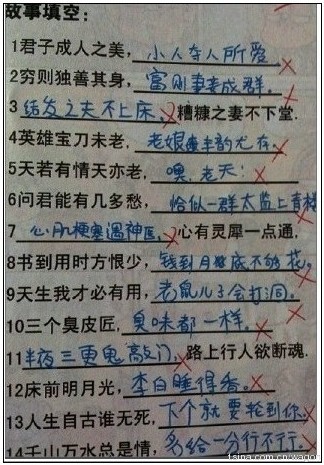 故事填空:
1君子成人之美,小人夺人所爱
2穷则独善其身,富则妻妾成群。
3结发之夫不上床,糟糠之妻不下堂.
4英雄宝刀未老,老娘丰韵尤存。
5天若有情天亦老,噢,老天!
6问君能有几多愁,恰似一群太监上青楼
7心肌梗塞遇神医,心有灵犀一点通,
8书到用时方恨少,钱到月底不够花,
9天生我才必有用,老鼠儿子会打洞。
10三个臭皮匠,臭味都一样。
11半夜三更鬼敲门,路上行人欲断魂.
12床前明月光,李白睡得香。
13人生自古谁无死,下个就要轮到你。
14千山万水总是情,多给一分行不行。